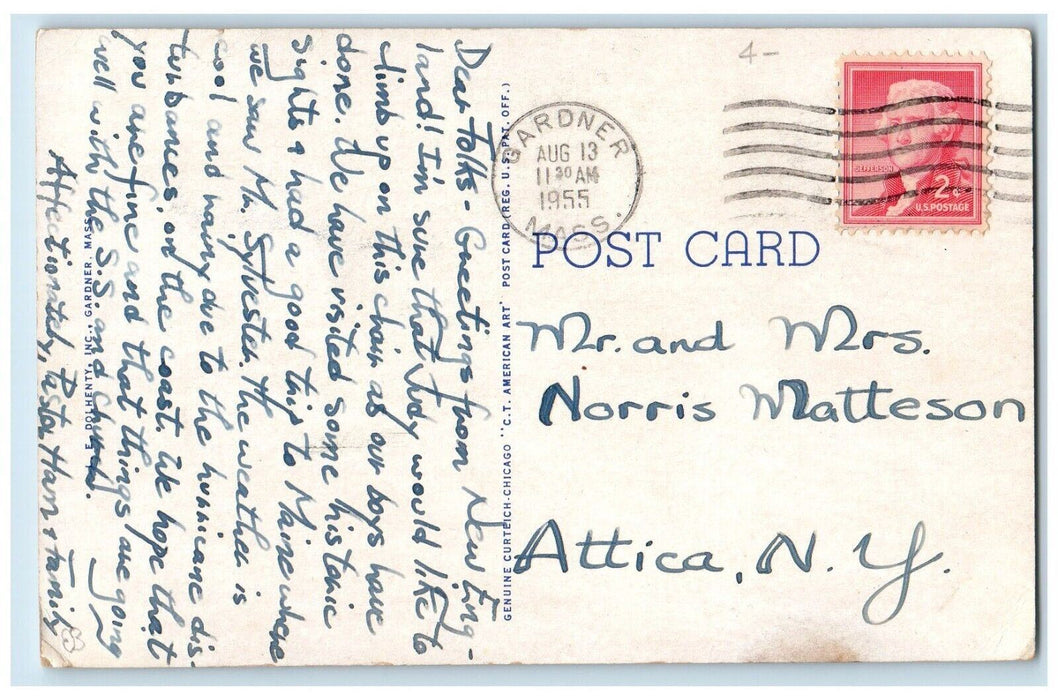 Dear Folks - Greetings from New Eng-
land! I'm sure that Judy would like to
climb up on this chair as our boys have
done. We have visited some historic
sights & had a good trip to Maine where
we saw Mr. Sylvester. The weather is
cool and rainy due to the hurricane dis-
turbances on the coast. We hope that
you are fine and that things are going
well with the S.S. and church.
Affectionately, Pastor Ham & Family
E. DOLHENTY, INC., GARDNER, MASS.
GENUINE CURTEICH-CHICAGO "C.T. AMERICAN ART" POST CARD (REG. U.S. PAT. OFF.)
4-
GARDNER
AUG 13
11 30 AM
1955
MASS.
JEFFERSON
2¢
U.S. POSTAGE
POST CARD
Mr. and Mrs.
Norris Matteson
Attica, N.Y.